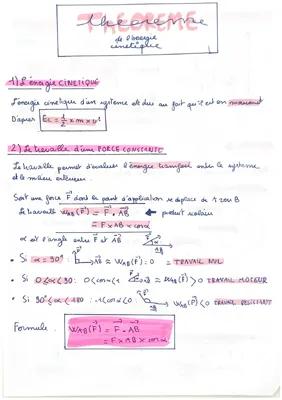 THEOREME
de l'énergie
cinétique
1) L'énergie CINETIQUE
L'énergie cinétique d'un système est due au fait qu'il est en mouvement
D'après Ec = 1/2 x m x v²
2) Le travail d'une FORCE CONSTANTE
Le travail permet d'évaluer l'énergie transféré entre le système
et le milieu extérieur.
Soit une force F⃗ dont le point d'application se déplace de A à B
Le travail WAB(F⃗) = F⃗ . AB⃗ ← produit scalaire
= F x AB x cos α
α est l'angle entre F⃗ et AB⃗
• Si α = 90° : WAB(F⃗) = 0 = TRAVAIL NUL
• Si 0 < α < 90 : 0 < cos α < 1 WAB(F⃗) > 0 TRAVAIL MOTEUR
• Si 90° < α < 180 : -1 < cos α < 0 WAB(F⃗) < 0 TRAVAIL RESISTANT
Formule : WAB(F⃗) = F⃗ . AB⃗
= F x AB x cos α